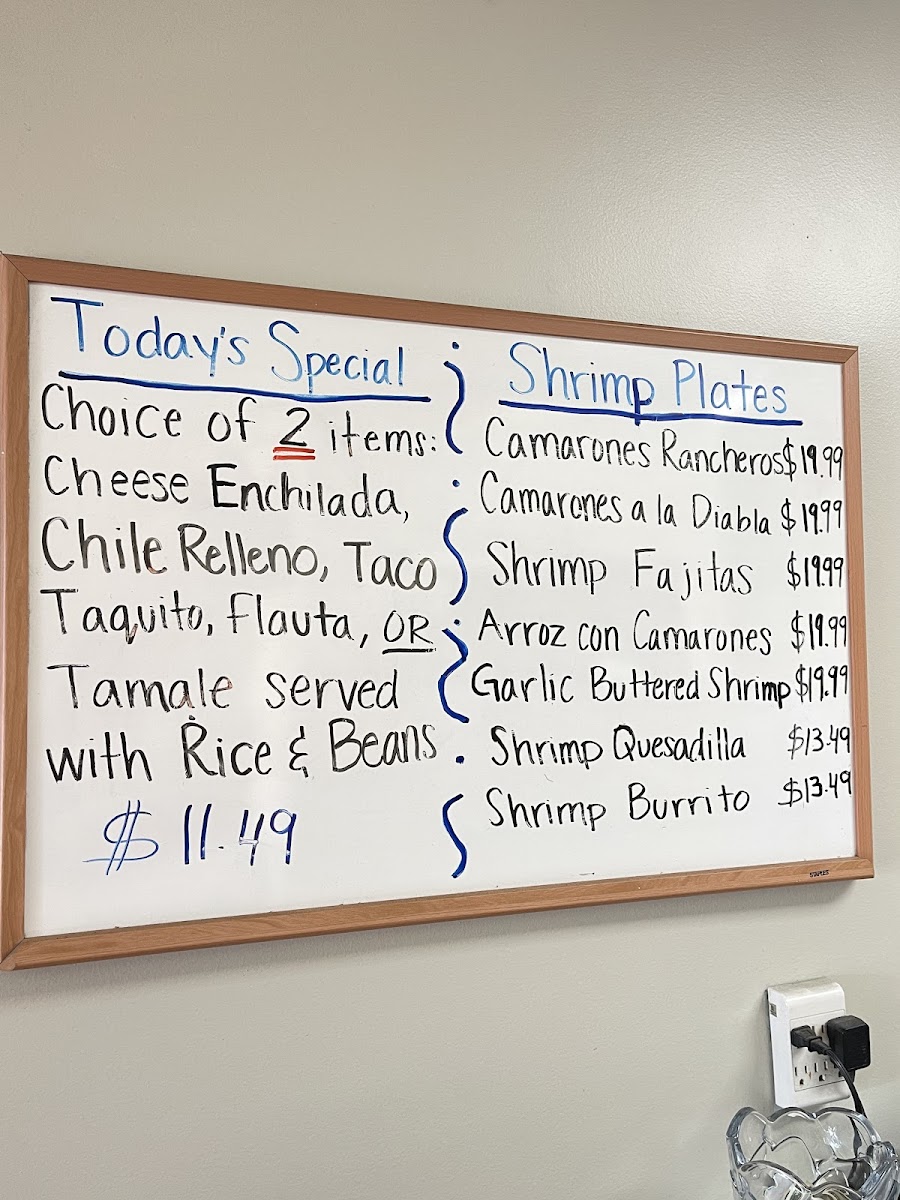 Today's Special
Choice of 2 items:
Cheese Enchilada,
Chile Relleno, Taco
Taquito, Flauta, OR
Tamale served
with Rice & Beans
$ 11.49
Shrimp Plates
Camarones Rancheros $19.99
Camarones a la Diabla $19.99
Shrimp Fajitas $19.99
Arroz con Camarones $19.99
Garlic Buttered Shrimp $19.99
Shrimp Quesadilla $13.49
Shrimp Burrito $13.49
STAPLES